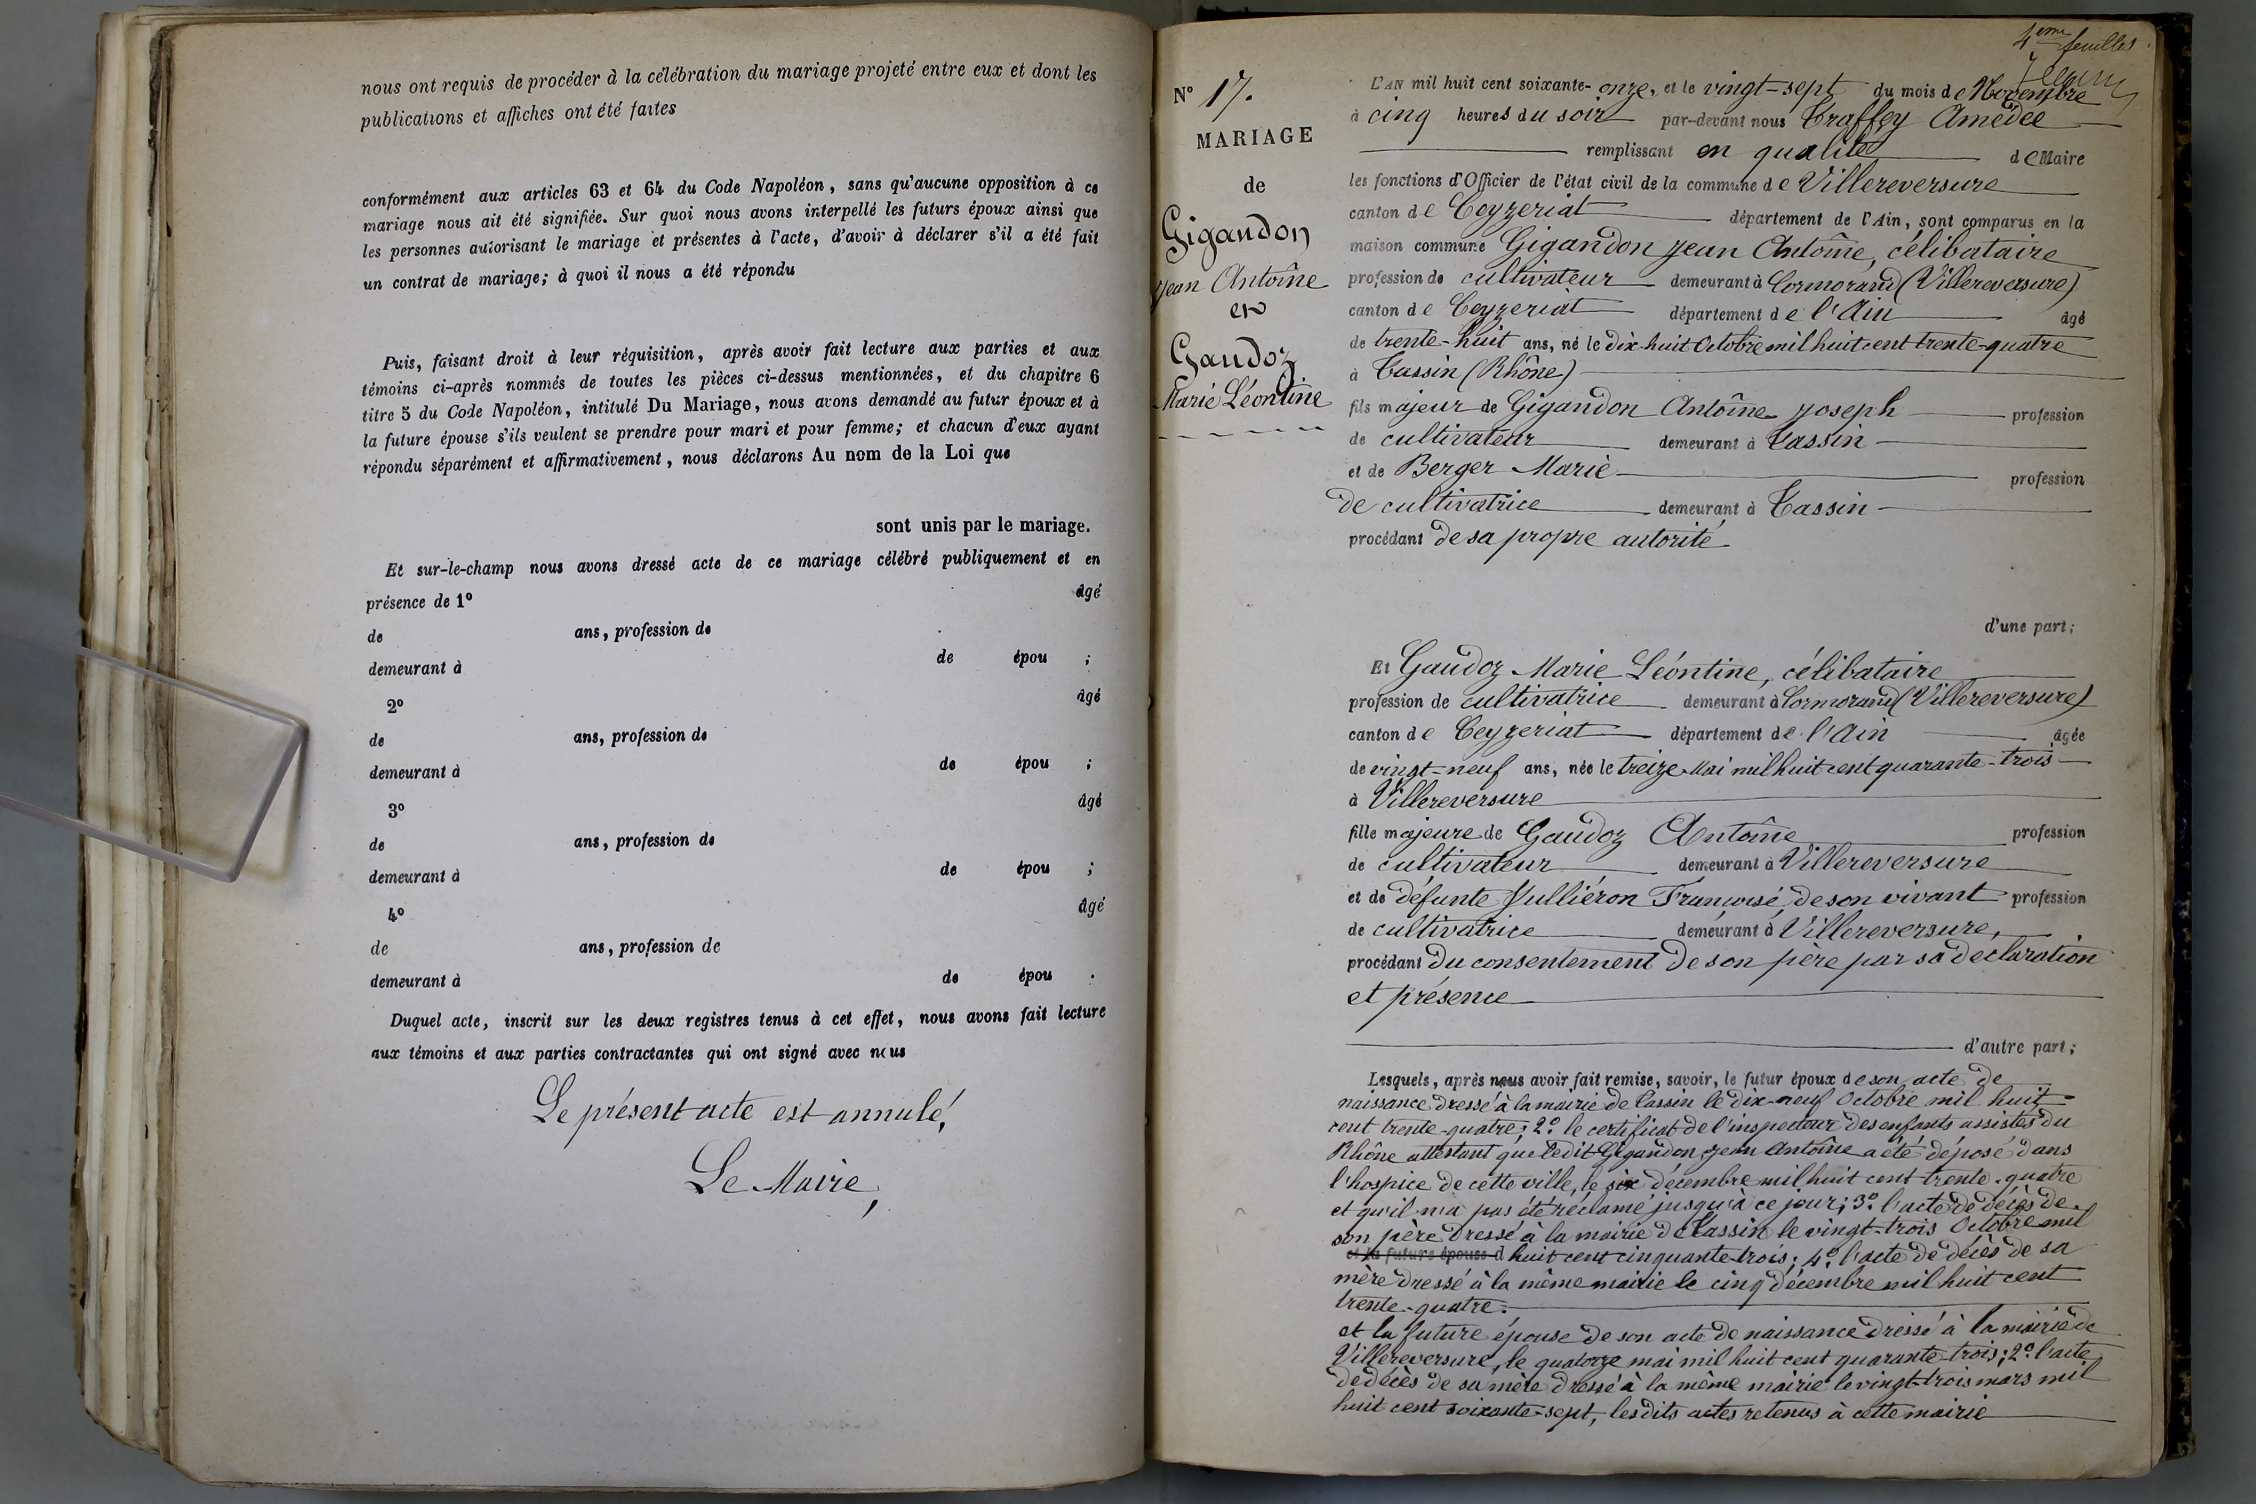 nous ont requis de procéder à la célébration du mariage projeté entre eux et dont les
publications et affiches ont été faites
conformément aux articles 63 et 64 du Code Napoléon, sans qu'aucune opposition à ce
mariage nous ait été signifiée. Sur quoi nous avons interpellé les futurs époux ainsi que
les personnes autorisant le mariage et présentes à l'acte, d'avoir à déclarer s'il a été fait
un contrat de mariage; à quoi il nous a été répondu
Puis, faisant droit à leur réquisition, après avoir fait lecture aux parties et aux
témoins ci-après nommés de toutes les pièces ci-dessus mentionnées, et du chapitre 6
titre 5 du Code Napoléon, intitulé Du Mariage, nous avons demandé au futur époux et à
la future épouse s'ils veulent se prendre pour mari et pour femme; et chacun d'eux ayant
répondu séparément et affirmativement, nous déclarons Au nom de la Loi que
sont unis par le mariage.
Et sur-le-champ nous avons dressé acte de ce mariage célébré publiquement et en
présence de 1º âgé
de ans, profession de
demeurant à de épou ;
2º âgé
de ans, profession de
demeurant à de épou ;
3º âgé
de ans, profession de
demeurant à de épou ;
4º âgé
de ans, profession de
demeurant à de épou .
Duquel acte, inscrit sur les deux registres tenus à cet effet, nous avons fait lecture
aux témoins et aux parties contractantes qui ont signé avec nous
Le présent acte est annulé,
Le Maire,
4eme feuilles
Nº 17.
MARIAGE
de
Gigandon
Jean Antoîne
et
Gaudoz
Marie Léontine
L'AN mil huit cent soixante-onze, et le vingt-sept du mois de Novembre
à cinq heures du soir par-devant nous Traffey Amédée
remplissant en qualité de Maire
les fonctions d'Officier de l'état civil de la commune de Villereversure
canton de Ceyzeriat département de l'Ain, sont comparus en la
maison commune Gigandon Jean Antoîne, célibataire
profession de cultivateur demeurant à Cormorand (Villereversure)
canton de Ceyzeriat département de l'Ain âgé
de trente-huit ans, né le dix-huit Octobre mil huit cent trente-quatre
à Tassin (Rhône)
fils majeur de Gigandon Antoîne Joseph profession
de cultivateur demeurant à Tassin
et de Berger Marie profession
de cultivatrice demeurant à Tassin
procédant de sa propre autorité
d'une part;
Et Gaudoz Marie Léontine, célibataire
profession de cultivatrice demeurant à Cormorand (Villereversure)
canton de Ceyzeriat département de l'Ain âgée
de vingt-neuf ans, née le treize Mai mil huit cent quarante-trois
à Villereversure
fille majeure de Gaudoz Antoîne profession
de cultivateur demeurant à Villereversure
et de défunte Vulliéron Françoise, de son vivant profession
de cultivatrice demeurant à Villereversure,
procédant du consentement de son père par sa déclaration
et présence
d'autre part;
Lesquels, après nous avoir fait remise, savoir, le futur époux de son acte de
naissance dressé à la mairie de Tassin le dix-neuf Octobre mil huit
cent trente-quatre; 2º le certificat de l'inspecteur des enfants assistés du
Rhône attestant que ledit Gigandon Jean Antoîne a été déposé dans
l'hospice de cette ville, le six décembre mil huit cent trente-quatre
et qu'il n'a pas été réclamé jusqu'à ce jour; 3º l'acte de décès de
son père dressé à la mairie de Tassin le vingt-trois Octobre mil
et la future épouse d huit cent cinquante-trois; 4º l'acte de décès de sa
mère dressé à la même mairie le cinq décembre mil huit cent
trente-quatre.
et la future épouse de son acte de naissance dressé à la mairie de
Villereversure, le quatorze mai mil huit cent quarante-trois; 2º l'acte
de décès de sa mère dressé à la même mairie le vingt-trois mars mil
huit cent soixante-sept, lesdits actes retenus à cette mairie